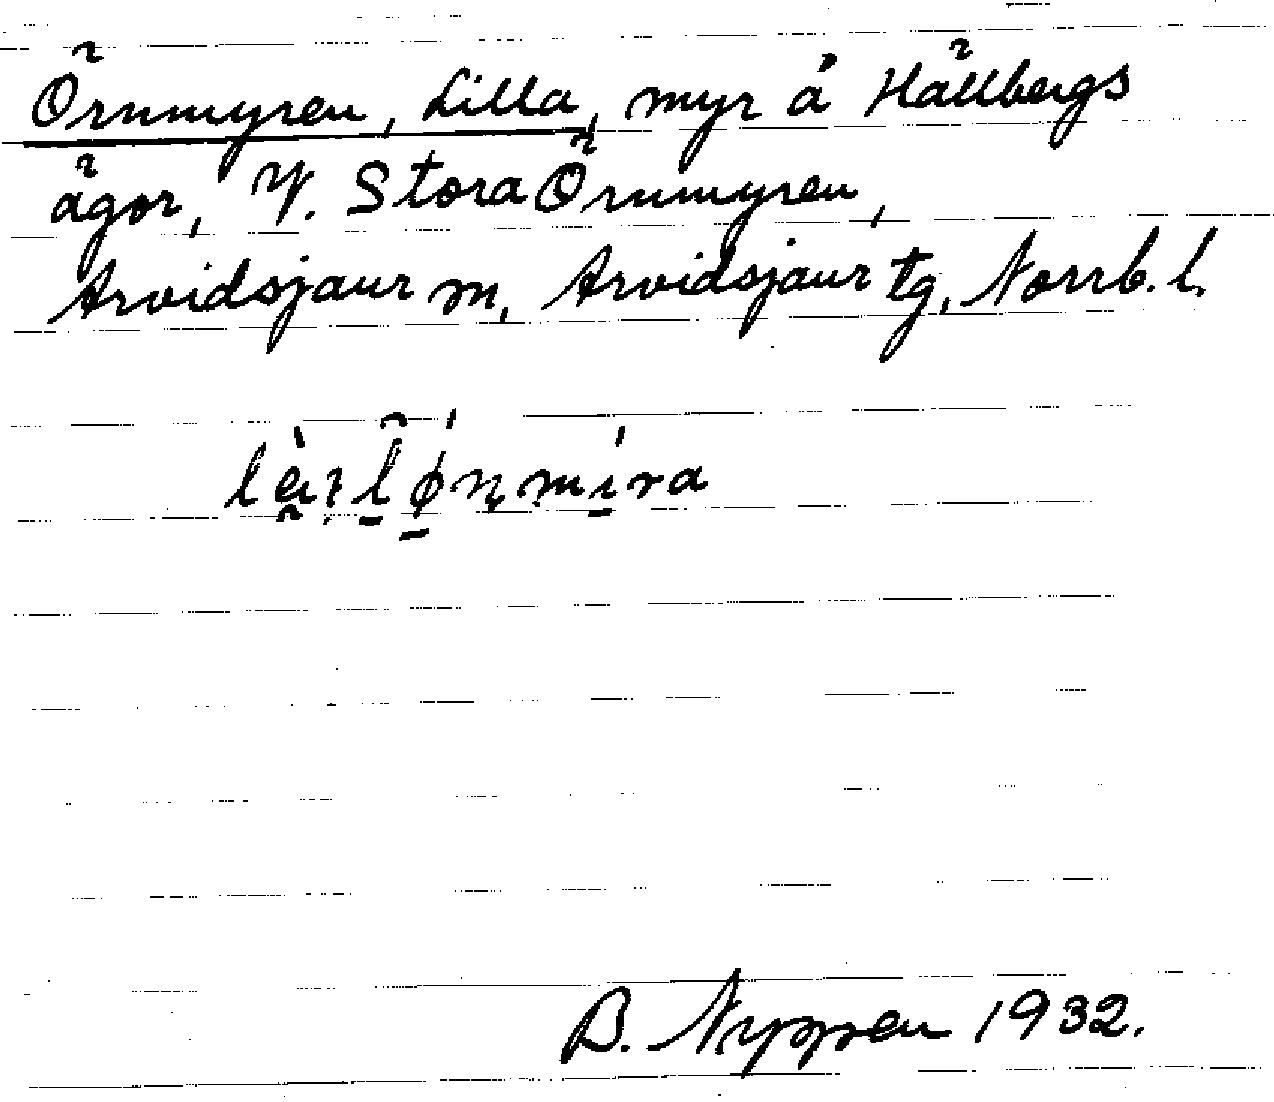 Örnmyren, Lilla, myr å Hällbergs
ägor, V. Stora Örnmyren,
Arvidsjaur sn, Arvidsjaur tg, Norrb. l.
B. Nyppen 1932.